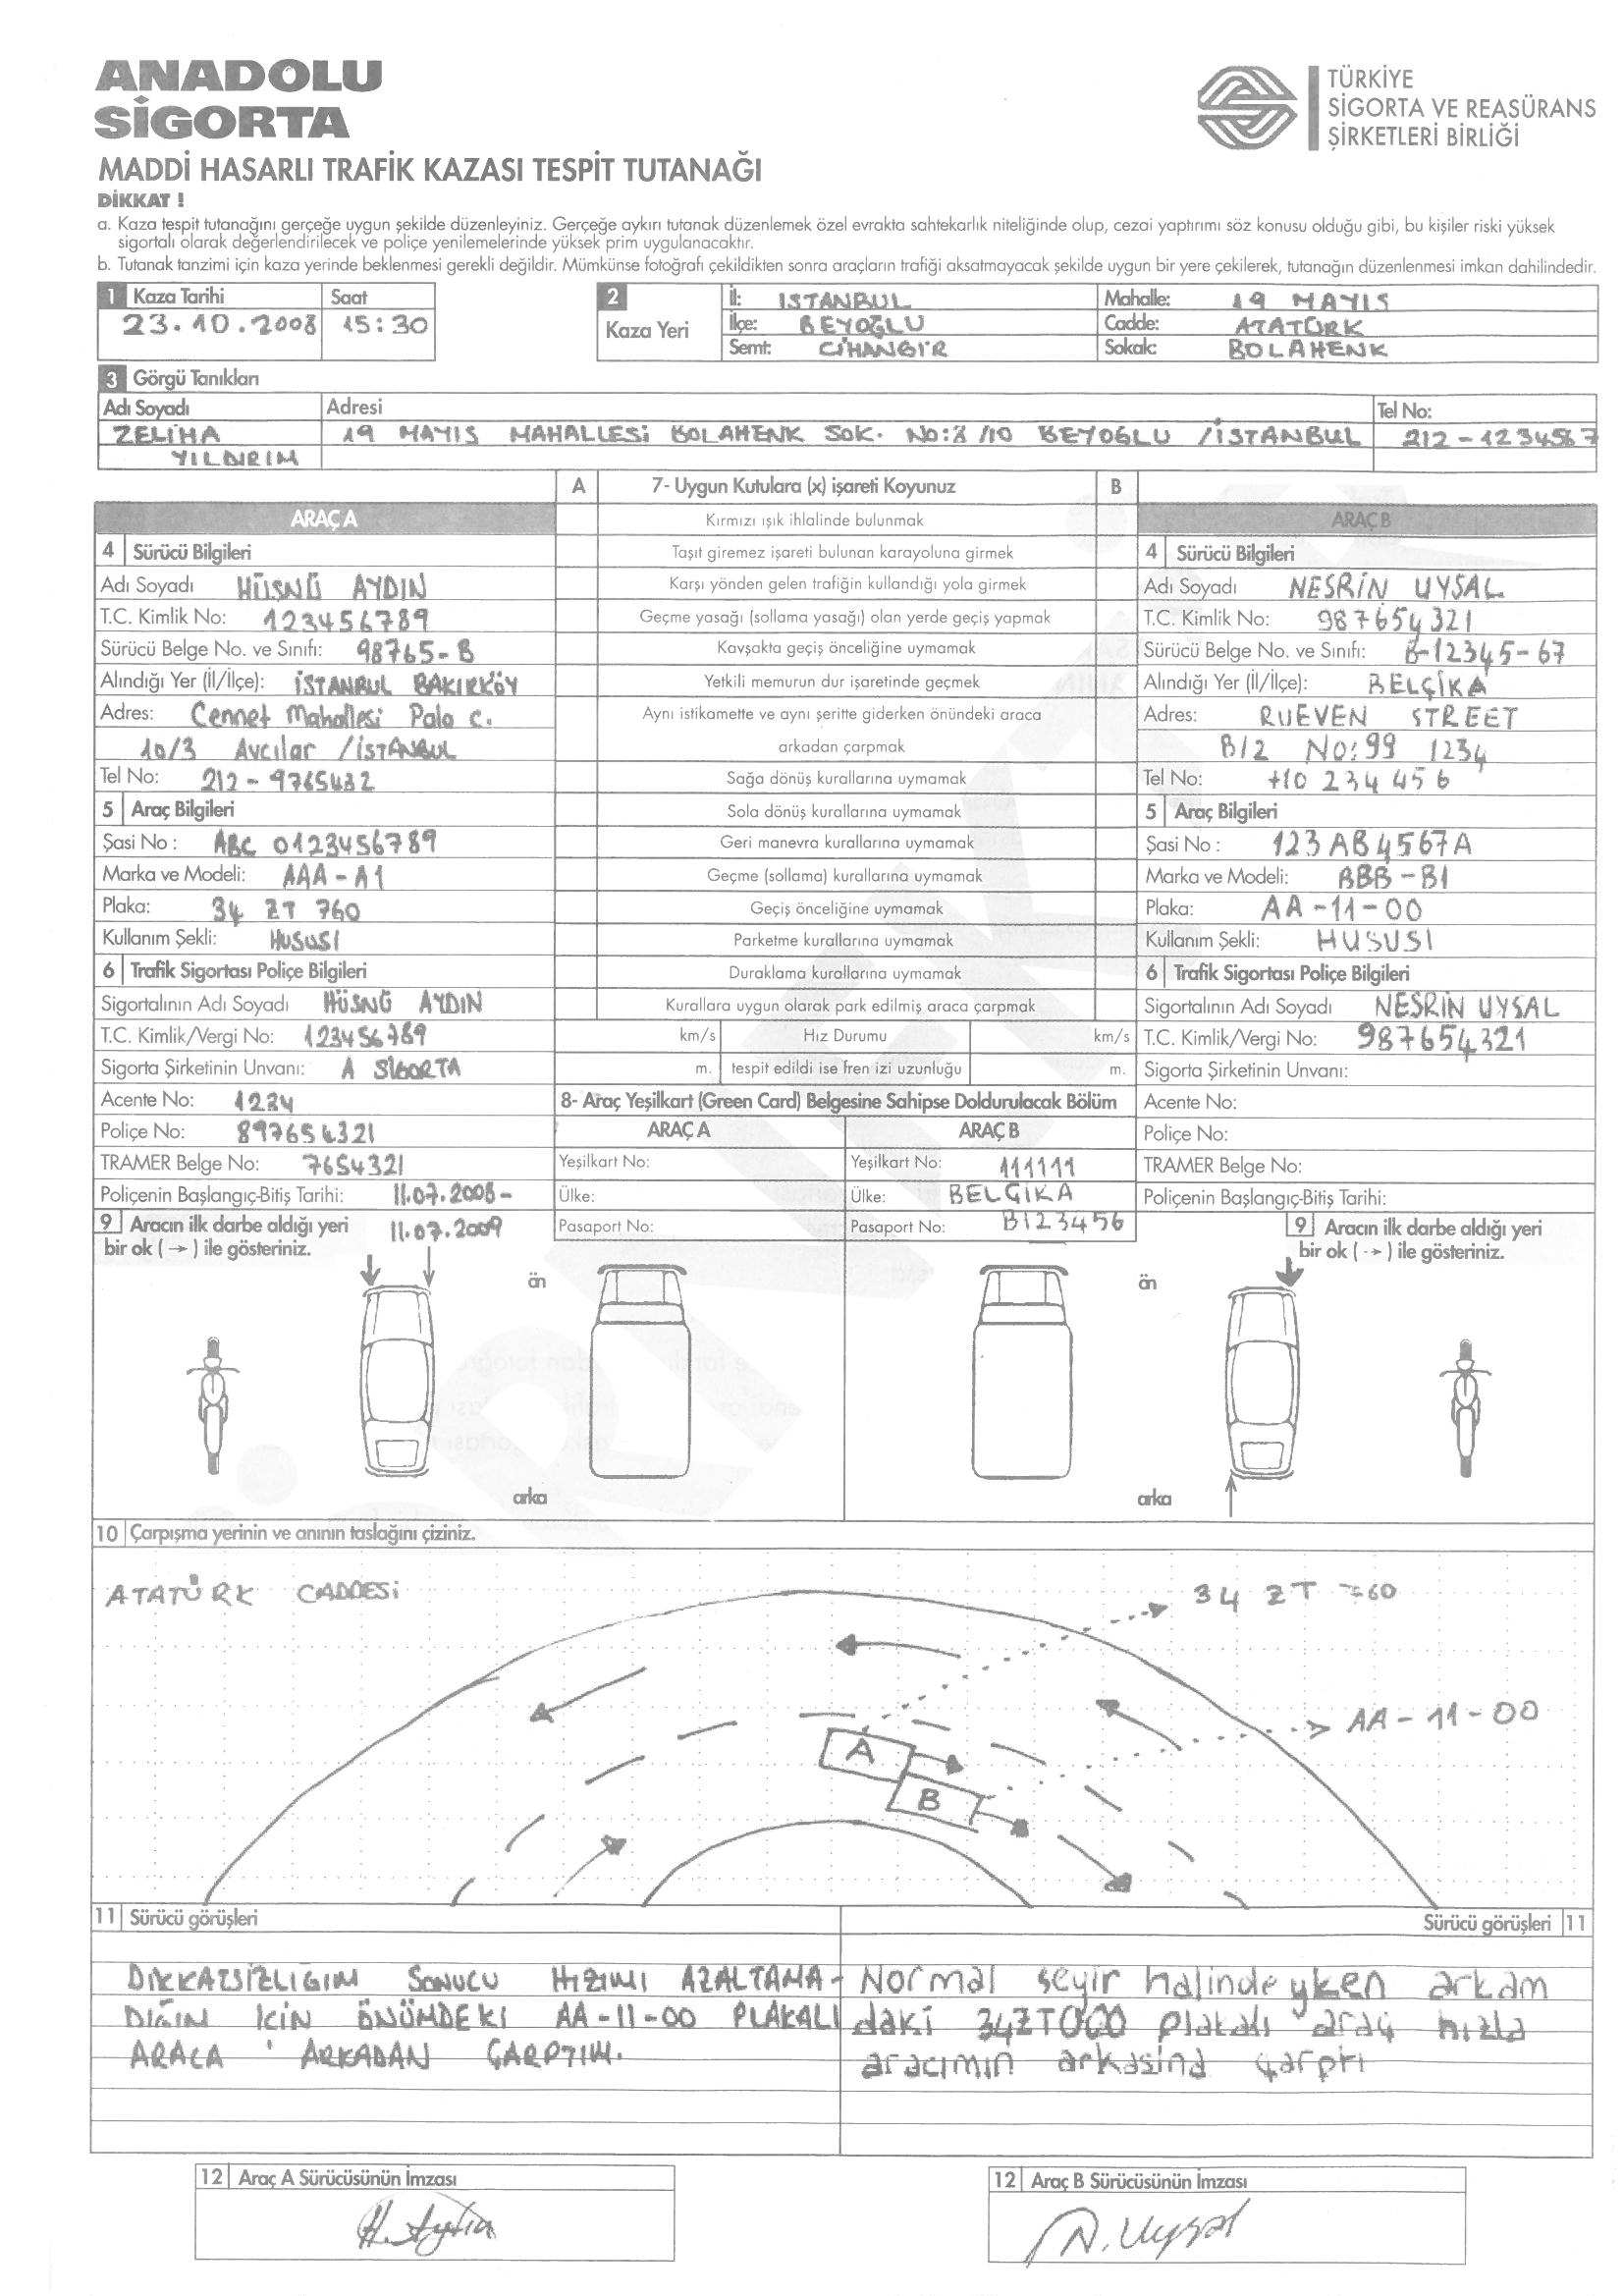 ANADOLU
SİGORTA
TÜRKİYE
SİGORTA VE REASÜRANS
ŞİRKETLERİ BİRLİĞİ
MADDİ HASARLI TRAFİK KAZASI TESPİT TUTANAĞI
DİKKAT !
a. Kaza tespit tutanağını gerçeğe uygun şekilde düzenleyiniz. Gerçeğe aykırı tutanak düzenlemek özel evrakta sahtekarlık niteliğinde olup, cezai yaptırımı söz konusu olduğu gibi, bu kişiler riski yüksek
sigortalı olarak değerlendirilecek ve poliçe yenilemelerinde yüksek prim uygulanacaktır.
b. Tutanak tanzimi için kaza yerinde beklenmesi gerekli değildir. Mümkünse fotoğrafı çekildikten sonra araçların trafiği aksatmayacak şekilde uygun bir yere çekilerek, tutanağın düzenlenmesi imkan dahilindedir.
1 Kaza Tarihi Saat
23.10.2008 15:30
2 Kaza Yeri
İl: ISTANBUL Mahalle: 19 MAYIS
İlçe: BEYOĞLU Cadde: ATATÜRK
Semt: CİHANGİR Sokak: BOLAHENK
3 Görgü Tanıkları
Adı Soyadı Adresi Tel No:
ZELİHA 19 MAYIS MAHALLESİ BOLAHENK SOK. NO:8/10 BEYOĞLU /İSTANBUL 212-1234567
YILDIRIM
A 7- Uygun Kutulara (x) işareti Koyunuz B
ARAÇ A
4 Sürücü Bilgileri
Adı Soyadı HÜSNÜ AYDIN
T.C. Kimlik No: 123456789
Sürücü Belge No. ve Sınıfı: 98765-B
Alındığı Yer (İl/İlçe): İSTANBUL BAKIRKÖY
Adres: Cennet Mahallesi Pala c.
10/3 Avcılar /İSTANBUL
Tel No: 212-9765432
5 Araç Bilgileri
Şasi No : ABC 0123456789
Marka ve Modeli: AAA-A1
Plaka: 34 ZT 760
Kullanım Şekli: HUSUSİ
6 Trafik Sigortası Poliçe Bilgileri
Sigortalının Adı Soyadı HÜSNÜ AYDIN
T.C. Kimlik/Vergi No: 123456789
Sigorta Şirketinin Unvanı: A SİGORTA
Acente No: 1234
Poliçe No: 897654321
TRAMER Belge No: 7654321
Poliçenin Başlangıç-Bitiş Tarihi: 11.07.2008-
11.07.2009
9 Aracın ilk darbe aldığı yeri
bir ok (→) ile gösteriniz.
Kırmızı ışık ihlalinde bulunmak
Taşıt giremez işareti bulunan karayoluna girmek
Karşı yönden gelen trafiğin kullandığı yola girmek
Geçme yasağı (sollama yasağı) olan yerde geçiş yapmak
Kavşakta geçiş önceliğine uymamak
Yetkili memurun dur işaretinde geçmek
Aynı istikamette ve aynı şeritte giderken önündeki araca
arkadan çarpmak
Sağa dönüş kurallarına uymamak
Sola dönüş kurallarına uymamak
Geri manevra kurallarına uymamak
Geçme (sollama) kurallarına uymamak
Geçiş önceliğine uymamak
Parketme kurallarına uymamak
Duraklama kurallarına uymamak
Kurallara uygun olarak park edilmiş araca çarpmak
km/s Hız Durumu km/s
m. tespit edildi ise fren izi uzunluğu m.
8- Araç Yeşilkart (Green Card) Belgesine Sahipse Doldurulacak Bölüm
ARAÇ A ARAÇ B
Yeşilkart No: Yeşilkart No: 111111
Ülke: Ülke: BELÇİKA
Pasaport No: Pasaport No: B123456
ARAÇ B
4 Sürücü Bilgileri
Adı Soyadı NESRİN UYSAL
T.C. Kimlik No: 987654321
Sürücü Belge No. ve Sınıfı: B-12345-67
Alındığı Yer (İl/İlçe): BELÇİKA
Adres: RUEVEN STREET
B/2 NO:99 1234
Tel No: +10 234 456
5 Araç Bilgileri
Şasi No : 123AB4567A
Marka ve Modeli: BBB-B1
Plaka: AA-11-00
Kullanım Şekli: HUSUSI
6 Trafik Sigortası Poliçe Bilgileri
Sigortalının Adı Soyadı NESRİN UYSAL
T.C. Kimlik/Vergi No: 987654321
Sigorta Şirketinin Unvanı:
Acente No:
Poliçe No:
TRAMER Belge No:
Poliçenin Başlangıç-Bitiş Tarihi:
9 Aracın ilk darbe aldığı yeri
bir ok (→) ile gösteriniz.
ön ön
arka arka
10 Çarpışma yerinin ve anının taslağını çiziniz.
ATATÜRK CADDESİ
34 ZT 760
AA-11-00
A
B
11 Sürücü görüşleri
DİKKATSİZLİĞİM SONUCU HIZIMI AZALTAMA-
DIĞIM İÇİN ÖNÜMDEKİ AA-11-00 PLAKALI
ARACA ARKADAN ÇARPTIM.
Sürücü görüşleri 11
Normal seyir halindeyken arkam
daki plakalı araç hızla
aracımın arkasına çarptı
12 Araç A Sürücüsünün İmzası
H. Aydın
12 Araç B Sürücüsünün İmzası
N. Uysal